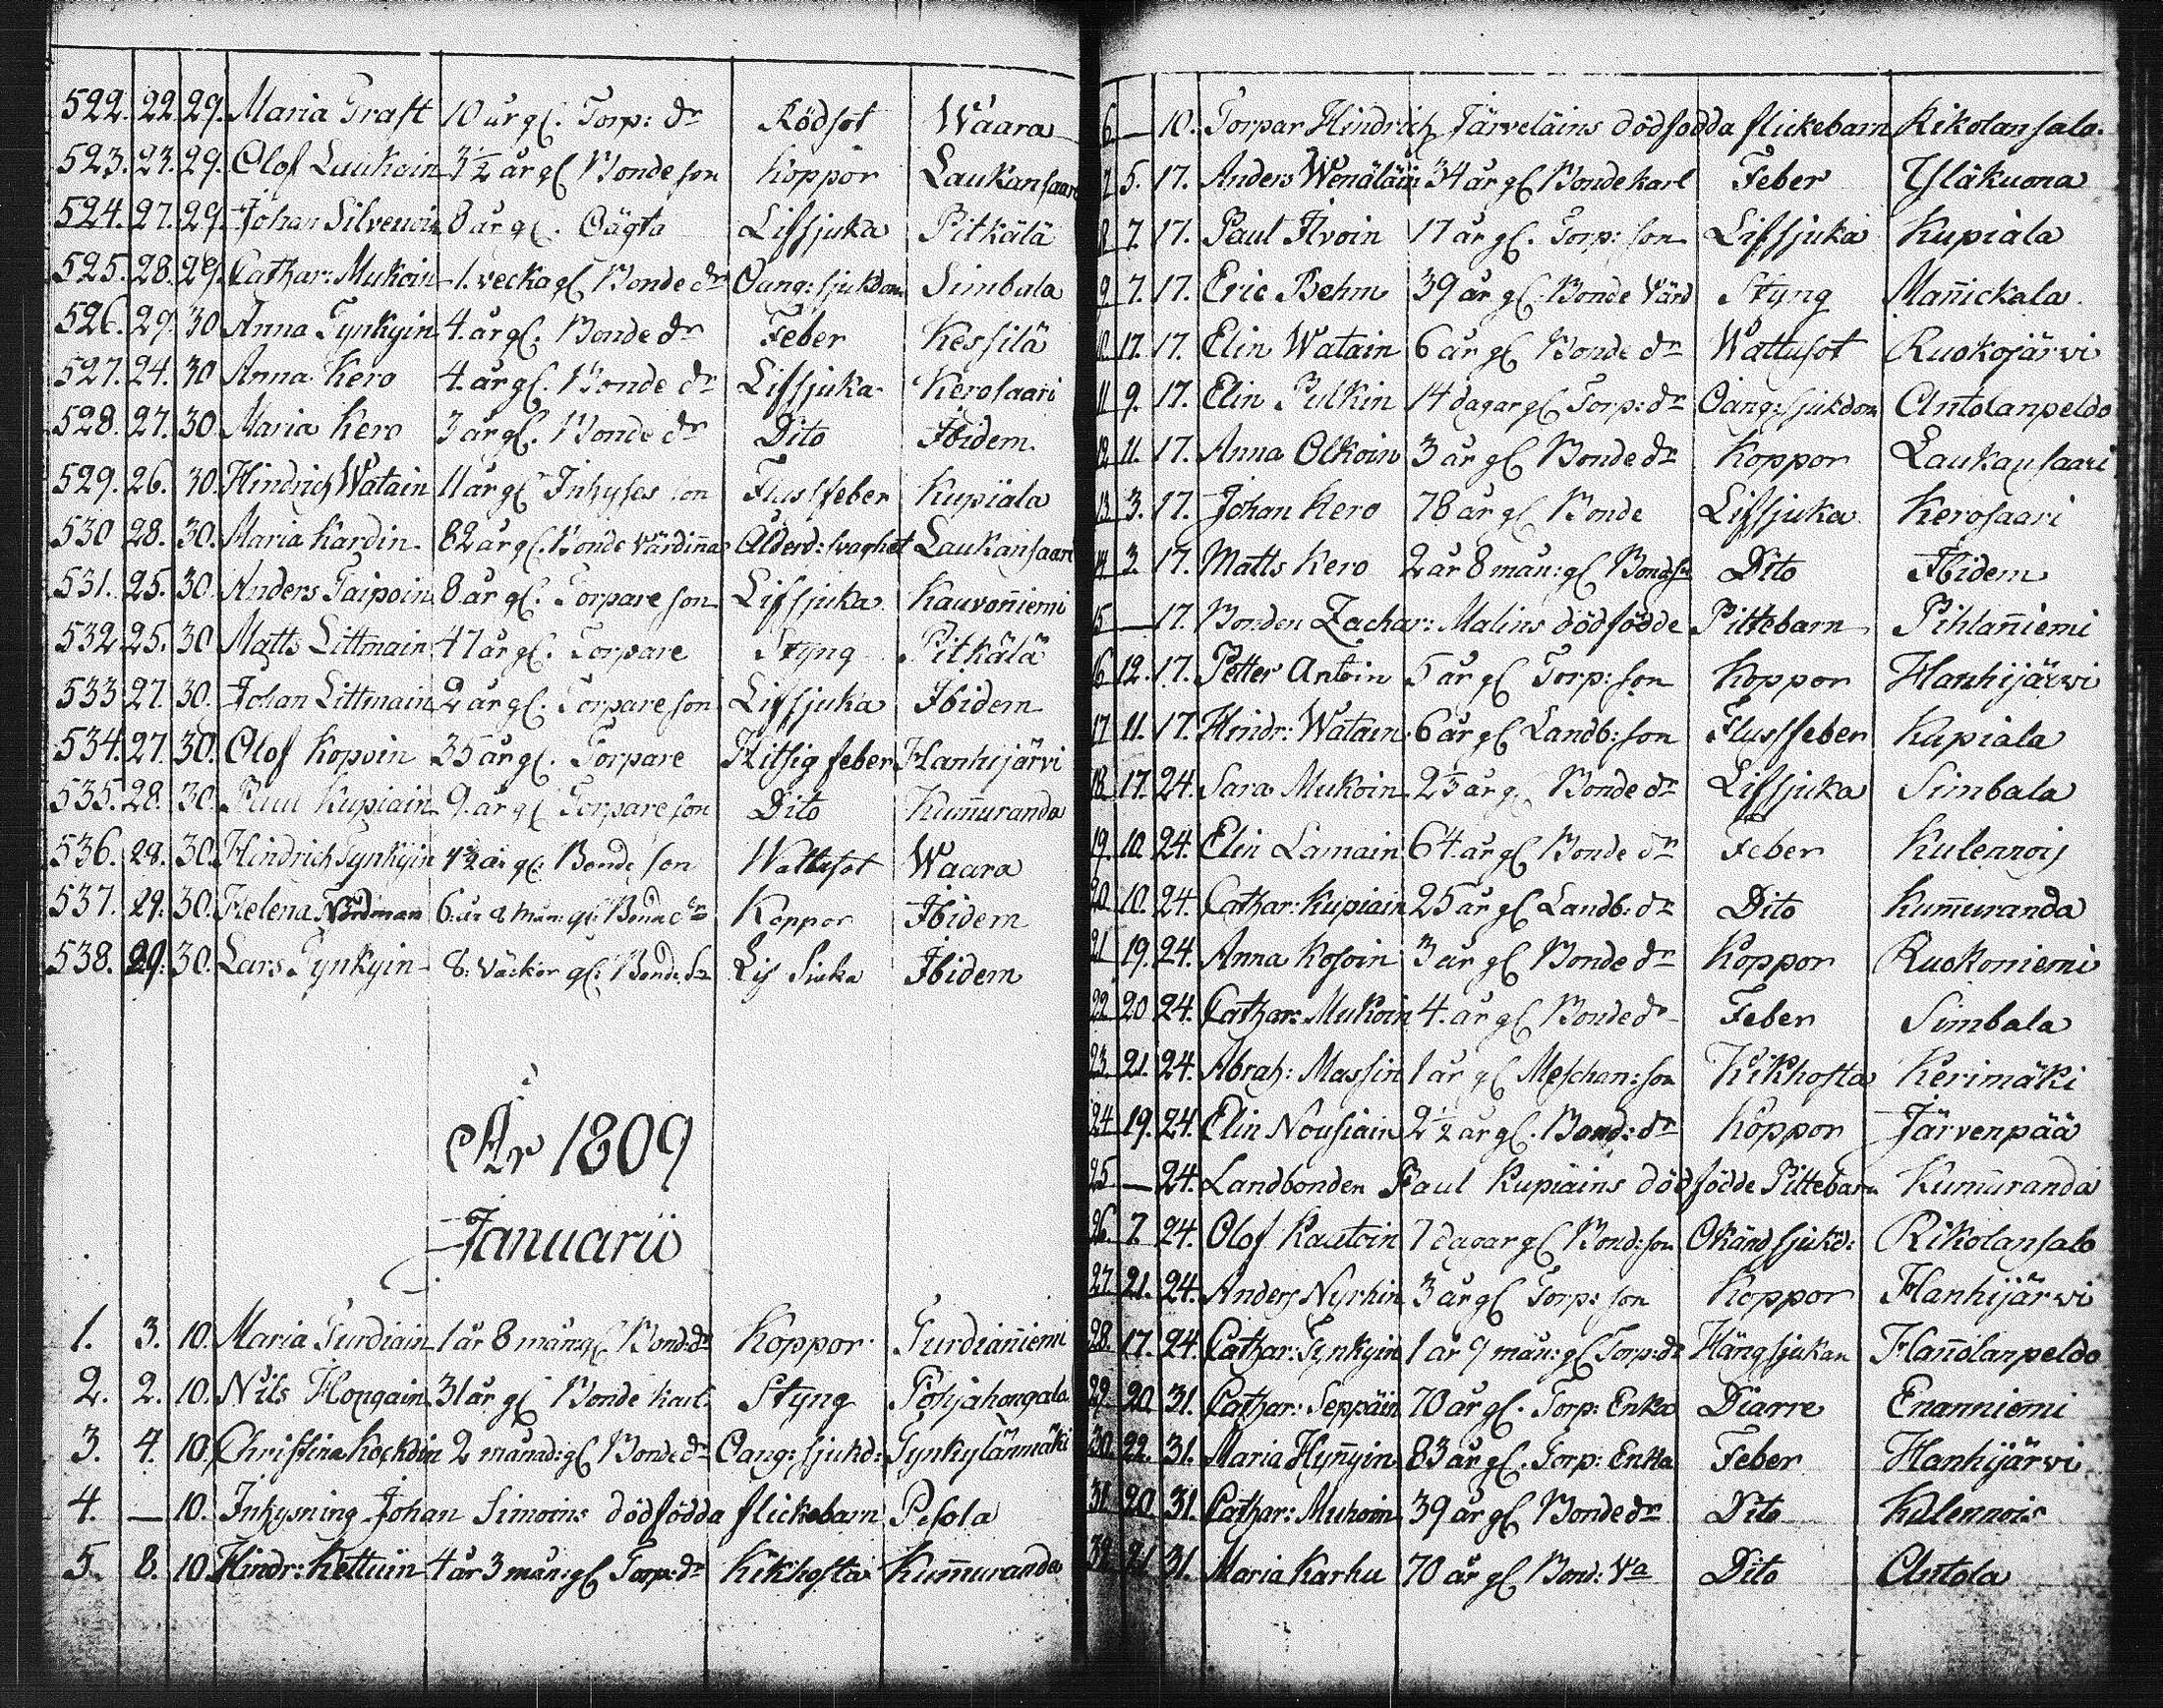 522. 22. 29. Maria Traft 10 år gl. Torp: dr Rödsot Waara
523. 27. 29. Olof Laukain 3½ år gl Bonde son Koppor Laukansaari
524. 27. 29. Johan Silvenoin 8 år gl. Oägta Lifsjuka Pitkälä
525. 28. 29. Cathar: Mukoin 1. vecka gl Bonde dr Oang: sjukdom Simbala
526. 29. 30 Anna Tynkyin 4. år gl. Bonde dr Feber Kessilä
527. 24. 30 Anna Kero 4. år gl. Bonde dr Lifsjuka Kerosaari
528. 27. 30 Maria Kero 3 år gl. Bonde dr Dito Ibidem.
529. 26. 30. Hindrich Watain 11 år gl Inhyses son Flussfeber Kupiala
530 28. 30. Maria Kardin. 82 år gl. Bonde värdinna Ålderd: svaghet Laukansaari
531. 25. 30. Anders Taipoin 8 år gl. Torpare son Lifsjuka Kauvonniemi
532 25. 30 Matts Littmain 47 år gl. Torpare Styng Pitkälä
533 27. 30. Johan Littmain 2 år gl. Torpare son Lifsjuka Ibidem
534. 27. 30. Olof Kopoin 35 år gl. Torpare Hitsig feber Hanhijärvi
535. 28. 30. Paul Kupiain 9. år gl Torpare son Dito Kum̄uranda
536. 29. 30. Hindrich Tynkyin år gl. Bonde son Wattusot Waara
537. 29. 30. Helena Nordman 6: år 8 mån: gl: Bonde dr Koppor Ibidem
538. 29. 30. Lars Tynkyin 8: väckor gl: Bonde: Sn Lif Siuka Ibidem
År 1809
Januarii
1. 3. 10. Maria Turdiain 1 år 8 mån: gl Bond: dr Koppor Turdian̄iemi
2. 2. 10. Nils Hongain 31 år gl Bonde karl Styng Pohjahongala
3. 4. 10. Christina Kockoin 2 månad: gl Bonde dr Oang: sjukd: Tynkylänmäki
4. — 10. Inhysning Johan Simoins dödfödda flickebarn Pesola
5. 8. 10. Hindr: Kettuin 4 år 3 mån: gl Torp: dr Kikhosta Kum̄uranda
6 — 10. Torpar Hindrich Järveläins dödfodda flickebarn Rikolansalo.
7 5. 17. Anders Wenäläin 34 år gl Bonde karl Feber Yläkuona
8 7. 17. Paul Ilvoin 17 år gl. Torp: son Lifsjuka Kupiala
9 7. 17. Eric Behm 39 år gl. Bonde Värd Styng Man̄ickala.
10. 17. 17. Elin Watain 6 år gl Bonde dr Wattusot Ruokojärvi
11 9. 17. Elin Pulkin 14 dagar gl Torp: dr Oang: sjukdom Antolanpeldo
12 11. 17. Anna Olkoin 3 år gl Bonde dr Koppor Laukansaari
13. 3. 17. Johan Kero 78 år gl Bonde Lifsjuka Kerosaari
14. 3. 17. Matts Kero 2 år 8 mån: gl Bond: sn Dito Ibidem
15 — 17. Bonden Zachar: Malins dödfödde Piltebarn Pihlan̄iemi
16 12. 17. Petter Antoin 5 år gl Torp: son Koppor Hanhijärvi
17 11. 17. Hindr: Watain 6 år gl Landb: son Flussfeber Kupiala
18. 17. 24. Sara Mukoin 2⅓ år gl Bonde dr Lifsjuka Simbala
19. 10. 24. Elin Lamain 64. år gl Bonde dr Feber Kulennoij
20. 10. 24. Cathar: Kupiain 25 år gl Landb: dr Dito Kum̄uranda
21 19. 24. Anna Kosoin 3 år gl Bonde dr Koppor Ruokoniemi
22. 20 24. Cathar: Mukoin 4. år gl Bonde dr Feber Simbala
23. 21. 24. Abrah: Massin 1 år gl Meschan: son Kikhosta Kerimäki
24 19. 24. Elin Nousiain 2½ år gl. Bond: dr Koppor Järvenpää
25 — 24. Landbonden Paul Kupiains dödfödde Piltebarn Kum̄uranda
26. 7. 24. Olof Kautoin 7 dagar gl Bond: son Okänd sjukd: Rikolansalo
27. 21. 24. Anders Nyrhin 3 år gl Torp: son Koppor Hanhijärvi
28. 17. 24. Cathar: Tynkyin 1 år 9 mån: gl Torp: dr Hängsjukan Han̄olanpeldo
29. 20. 31. Cathar: Seppäin 70 år gl. Torp: Enka Diarre Enanniemi
30. 22. 31. Maria Hyn̄yin 83 år gl. Torp: Enka Feber Hanhijärvi
31. 20. 31. Cathar: Muhoin 39 år gl Bonde dr Dito Kulennois
32. 21 31. Maria Karhu 70 år gl Bond: Va Dito Antola